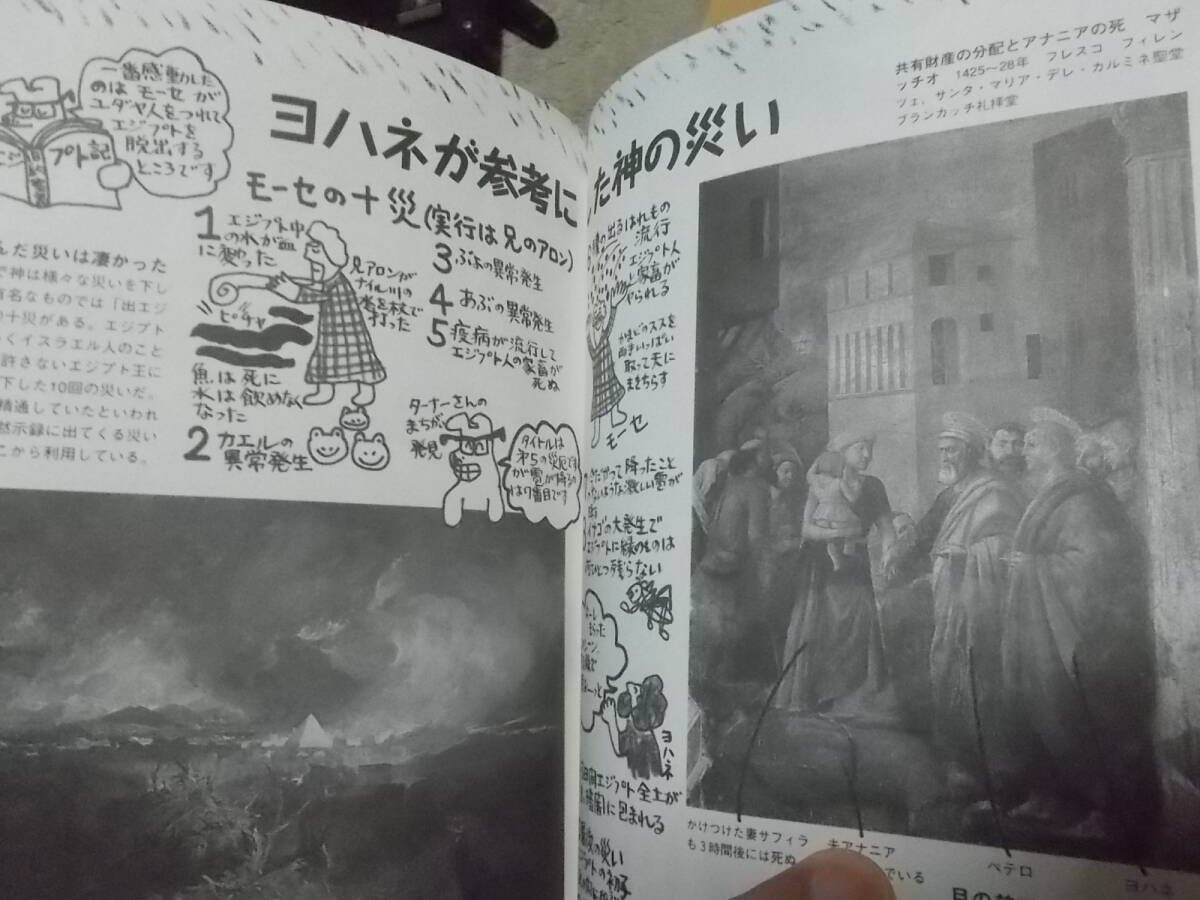 一番感動した
のは モーセ が
ユダヤ人をつれて
エジプトを
脱出する
ところです
プト記
ヨハネが参考に
した神の災い
モーセの十災(実行は兄のアロン)
1 エジプト中
の水が血
に変わった
兄アロンが
ナイル川の
水を杖で
打った
ピチャ
魚は死に
水は飲めなく
なった
2 カエルの
異常発生
3 ぶよの異常発生
4 あぶの異常発生
5 疫病が流行して
エジプト人の家畜が
死ぬ
ターナーさんの
まちがい
発見
タイトルは
第5の災厄です
が雹が降るの
は7番目です
んだ災いは凄かった
で神は様々な災いを下し
有名なものでは「出エジ
の十災がある。エジプト
くイスラエル人のこと
許さないエジプト王に
下した10回の災いだ。
精通していたといわれ
黙示録に出てくる災い
こから利用している。
の出るはれもの
流行
エジプト人
と家畜が
やられる
かまどのススを
両手いっぱい
取って天に
まきちらす
モーセ
かつて降ったこと
のないような激しい雹が
イナゴの大発生で
エジプトに緑のものは
ひとつ残らない
ヨハネ
日間エジプト全土が
暗闇に包まれる
の災い
の初子
共有財産の分配とアナニアの死 マザ
ッチオ 1425〜28年 フレスコ フィレン
ツェ、サンタ・マリア・デレ・カルミネ聖堂
ブランカッチ礼拝堂
かけつけた妻サフィラ
も3時間後には死ぬ
夫アナニア
でいる
ペテロ
ヨハネ